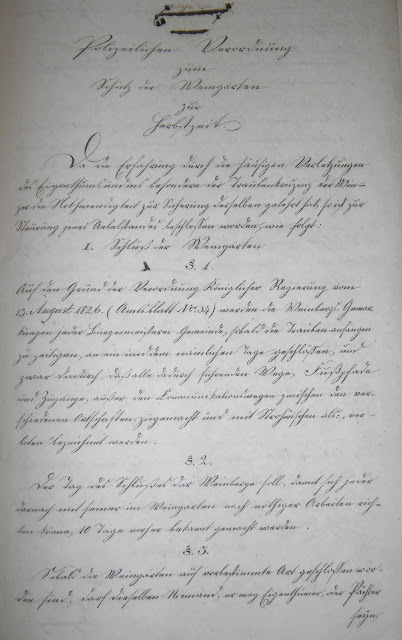 Polizeilichen Verordnung
zum
Schutz der Weingärten
zur
Herbstzeit
Da die Erfahrung durch die häufigen Verletzungen
des Eigenthums und ins besondere der Traubenkreszenz der Win-
zer die Nothwendigkeit zur Sicherung derselben gelehrt hat, so ist zur
Steurung jenes Uebelstandes beschlossen worden, wie folgt:
I. Schluß der Weingärten
§. 1.
Auf den Grund der Verordnung Königlicher Regierung vom
13. August 1826. (Amtsblatt No 34) werden die Weinbergs Gemar-
kungen jeder Bürgermeisterei Gemeinde, sobald die Trauben anfangen
zu zeitigen, an ein und dem nämlichen Tage geschlossen, und
zwar dadurch, daß alle dadurch führenden Wege, Fußpfade
und Zugänge, außer den Communikationswegen zwischen den ver-
schiedenen Ortschaften, zugemacht und mit Strohwischen als: ver-
boten bezeichnet werden.
§. 2.
Der Tag des Schlußes der Weinberge soll, damit sich jeder
darnach mit seinen im Weingarten noch nöthigen Arbeiten rich-
ten könne, 10 Tage vorher bekannt gemacht werden.
§. 3.
Sobald die Weingärten auf vorbestimmte Art geschlossen wor-
den sind, darf dieselben Niemand, er mag Eigenthümer, oder Pächter
seyn,